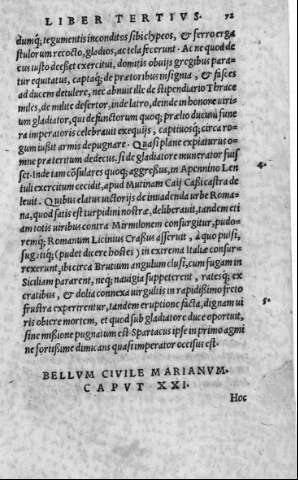 LIBER TERTIVS. 72
dumq; tegumentis inconditos sibi clypeos, & ferro erga
stulorum recocto, gladios, ac tela fecerunt. Ac ne quod de
cus iusto deesset exercitui, domitis obuijs gregibus para-
tur equitatus, captaq; de prætoribus insignia, & fasces
ad ducem detulere, nec abnuit ille de stipendiario Thrace
miles, de milite desertor, inde latro, deinde in honore uiriu
um gladiator, qui defunctorum quoq; prælio ducum fune
ra imperatorijs celebrauit exequijs, captiuosq; circa ro-
gum iussit armis depugnare. Quasi plane expiaturus o-
mne præteritum dedecus, si de gladiatore munerator fuis
set. Inde iam cōsulares quoq; aggressus, in Apennino Len
tuli exercitum cecidit, apud Mutinam Caij Cassi castra de
leuit. Quibus elatus uictorijs de inuadenda urbe Roma
na, quod satis est turpidini nostræ, deliberauit, tandem eti
am totis uiribus contra Mirmilonem consurgitur, pudo-
remq; Romanum Licinius Crassus asseruit, à quo pulsi,
fugatiq; (pudet dicere hostes) in extrema Italiæ confu-
gerunt, ibi circa Brutium angulum clusi, cum fugam in
Siciliam pararent, neq; nauigia suppeterent, ratesq; ex
cratibus, & dolia connexa uirgultis in rapidissimo freto
frustra experirentur, tandem eruptione facta, dignam ui
ris obiere mortem, et quod sub gladiatore duce oportuit,
sine missione pugnatum est. Spartacus ipse in primo agmi
ne fortissime dimicans quasi imperator occisus est.
4.
5.
BELLVM CIVILE MARIANVM.
CAPVT XXI.
Hoc